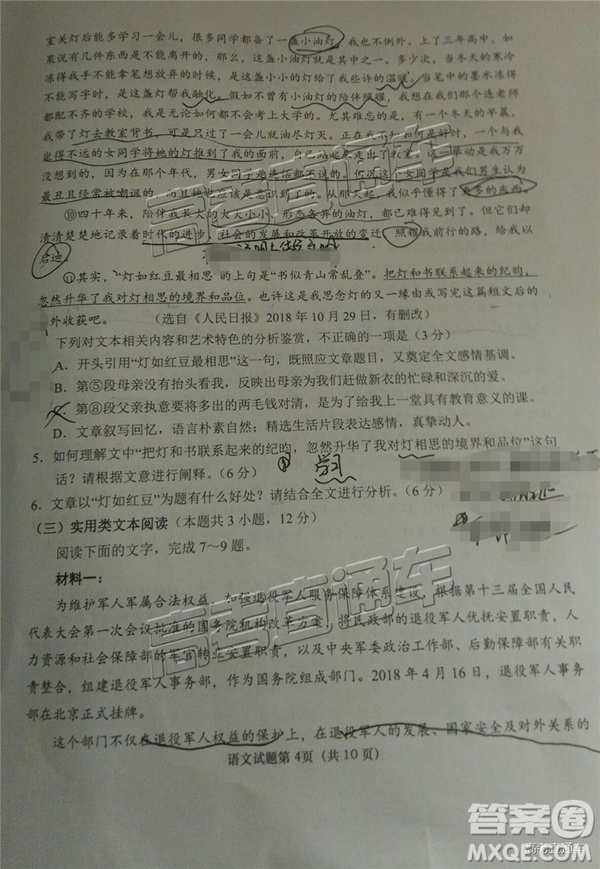 室关灯后能多学习一会儿，很多同学都备了一盏小油灯，我也不例外。上了三年高中，如
果说有几件东西是不能离开的，那么，这盏小油灯就是其中之一。多少次，当冬天的寒冷
冻得我手不能拿笔想放弃的时候，是这盏小小的灯给了我些许的温暖，当笔中的墨水冻得
不能写字时，是这盏灯帮我融化。假如不曾有小油灯的陪伴照耀，在我们那个连老师
都配不齐的学校，我是无论如何都不会考上大学的。尤其难忘的是，有一个冬天的早晨，
我带了灯去教室背书，可是只过了一会儿就油尽灯灭。正当我不知如何是好时，一个与我
坐得不远的女同学将她的灯推到了我的面前，自己站起来走出了教室。这一举动是我万万
没想到的，因为在那个年代，男女同学是连话都不说的，何况这个女同学是我们男生认为
最丑且经常被嘲讽的，而且她也应该是意识到的。从那天起，我似乎懂得了更多的东西。
⑩四十年来，陪伴我长大的大大小小、形态各异的油灯，都已不见了踪影，但它们却
清清楚楚地记录着时代的进步、社会的发展和改革开放的变迁，照耀我前行的路，给我以
启迪
⑪其实，“灯如红豆最相思”的上句是“书似青山常乱叠”。把灯和书联系起来的纪昀，
忽然升华了我对灯相思的境界和品位。也许这是我思念灯的又一缘由或完写这篇短文后的
外收获吧。 （选自《人民日报》2018年10月29日，有删改）
下列对文本相关内容和艺术特色的分析鉴赏，不正确的一项是（3分）
A．开头引用“灯如红豆最相思”这一句，既照应文章题目，又奠定全文感情基调。
B．第⑤段母亲没有抬头看我，反映出母亲为我们赶做新衣的忙碌和深沉的爱。
．第⑧段父亲执意要将多出的两毛钱对清，是为了给我上一堂具有教育意义的课。
D．文章叙写回忆，语言朴素自然；精选生活片段表达感情，真挚动人。
5．如何理解文中“把灯和书联系起来的纪昀，忽然升华了我对灯相思的境界和品位”这句
话？请根据文意进行阐释。（6分）
① 学习
6．文章以“灯如红豆”为题有什么好处？请结合全文进行分析。（6分）
（三）实用类文本阅读（本题共3小题，12分）
阅读下面的文字，完成7～9题。
材料一：
为维护军人军属合法权益，加强退役军人服务保障体系建设，根据第十三届全国人民
代表大会第一次会议批准的国务院机构改革方案，将民政部的退役军人优抚安置职责，人
力资源和社会保障部的军官转业安置职责，以及中央军委政治工作部、后勤保障部有关职
责整合，组建退役军人事务部，作为国务院组成部门。2018年4月16日，退役军人事务
部在北京正式挂牌。
这个部门不仅在退役军人权益的保护上，在退役军人的发展、国家安全及对外关系的
语文试题第4页（共10页）
高考直通车
高考直通车
答案圈
MXQE.COM
高考直通车